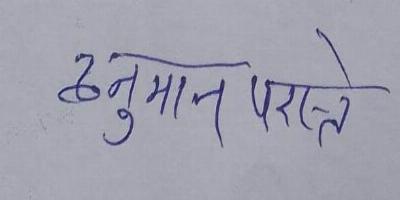 हनुमान परास्ते